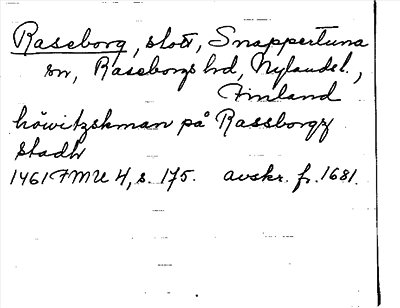 Raseborg, slott, Snappertuna
sn, Raseborgs hd, Nylandsl.,
Finland
höwitzskman på Rassborgz
stadh
1461 FMU 4, s. 175. avskr. fr. 1681.